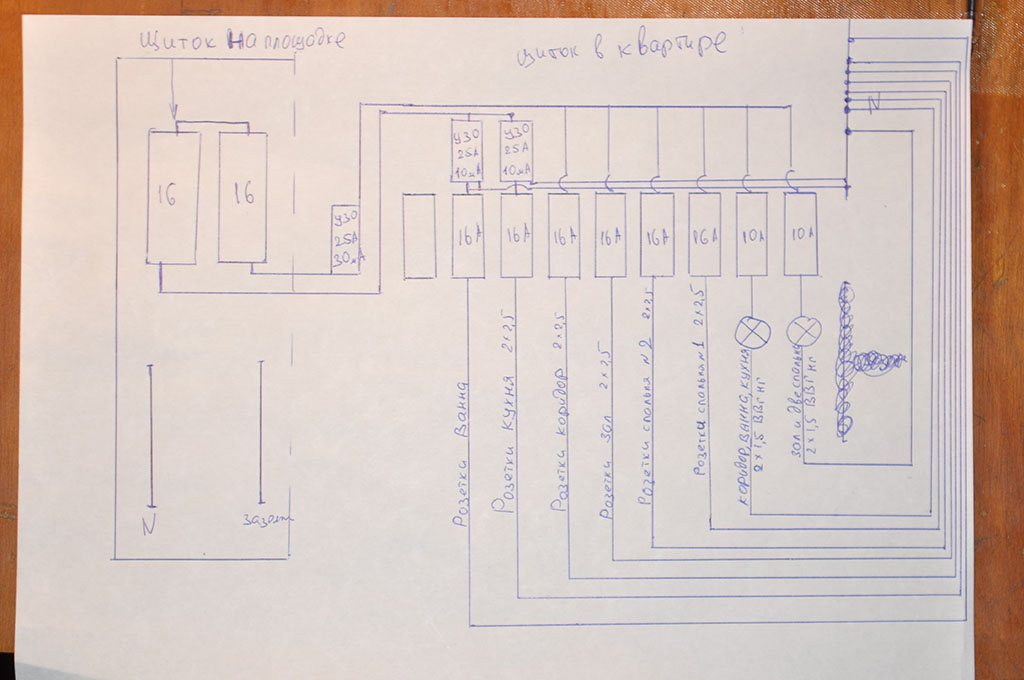 Щиток на площадке
щиток в квартире
16
16
УЗО
25А
30мА
УЗО
25А
10мА
УЗО
25А
10мА
16А
16А
16А
16А
16А
16А
10А
10А
N
Розетки Ванна
Розетки кухня 2×2,5
Розетки коридор 2×2,5
Розетки зал 2×2,5
Розетки спальня №2 2×2,5
Розетки спальня №1 2×2,5
коридор, ванна, кухня
2×1,5 ВВГнг
зал и две спальни
2×1,5 ВВГнг
N